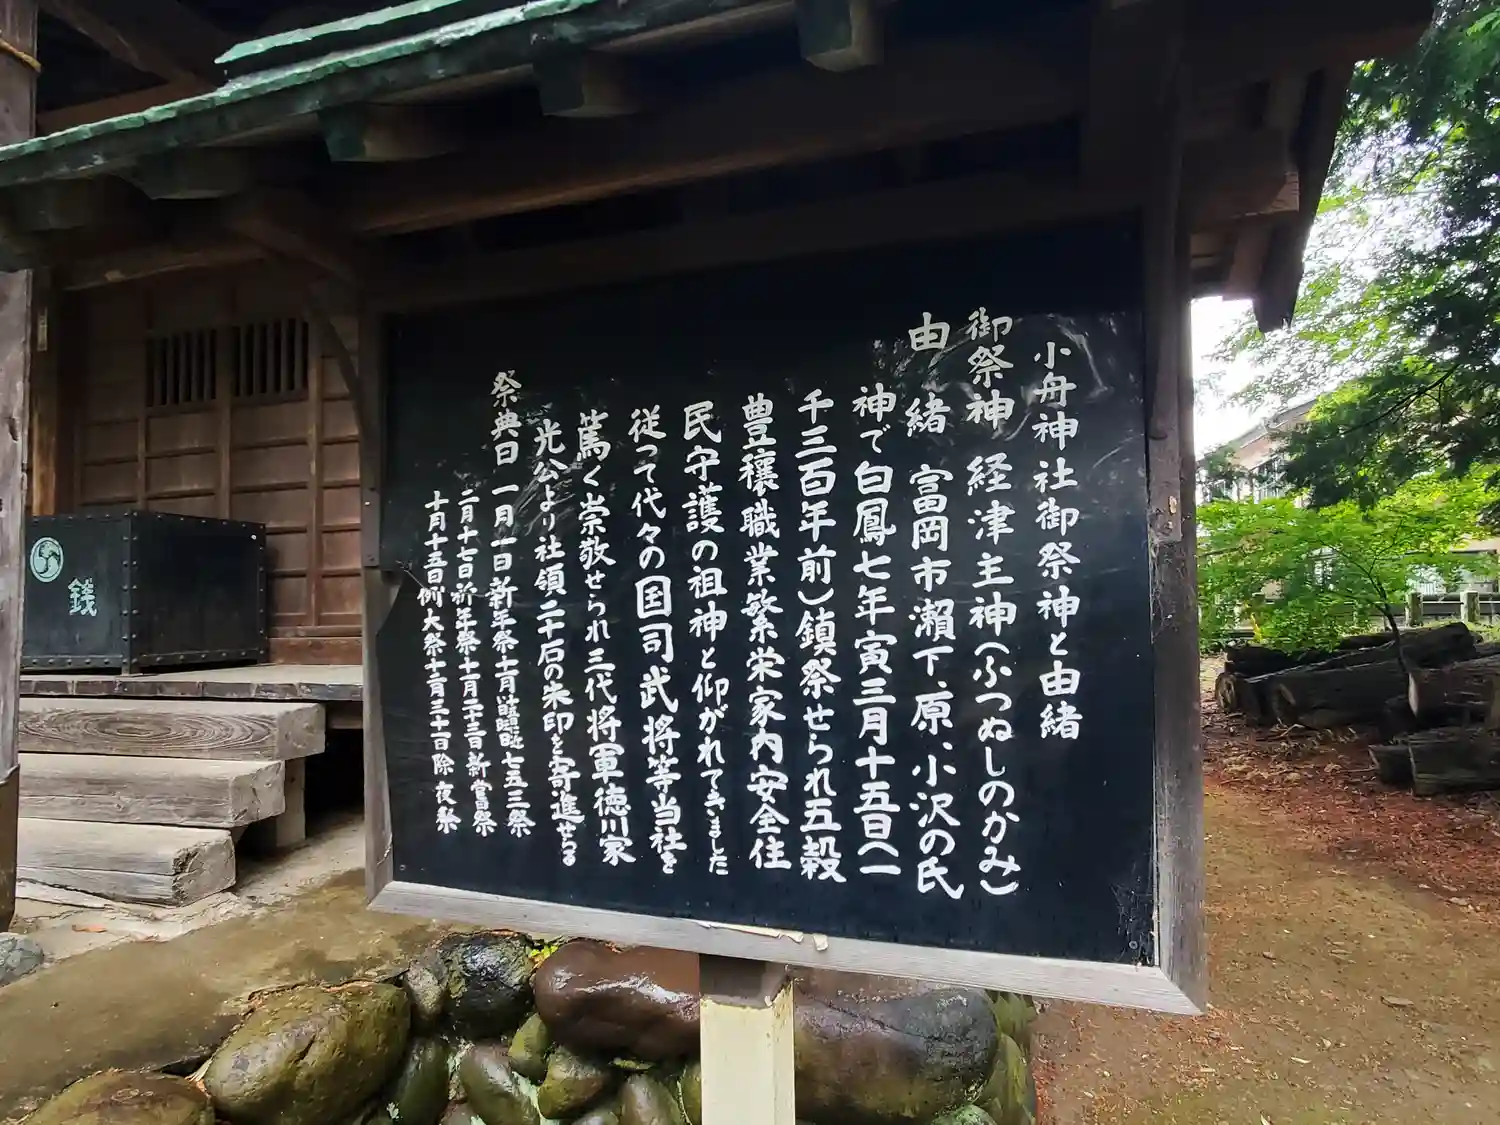 小舟神社御祭神と由緒
御祭神 経津主神(ふつぬしのかみ)
由緒 富岡市瀬下、原、小沢の氏
神で白鳳七年寅三月十五日(一
千三百年前)鎮祭せられ五穀
豊穣職業繁栄家内安全住
民守護の祖神と仰がれてきました
従って代々の国司武将等当社を
篤く崇敬せられ三代将軍徳川家
光公より社領二十石の朱印を寄進せらる
祭典日 一月一日新年祭十一月 七五三祭
二月十七日祈年祭十一月二十三日新嘗祭
十月十五日例大祭十二月三十一日除夜祭
銭